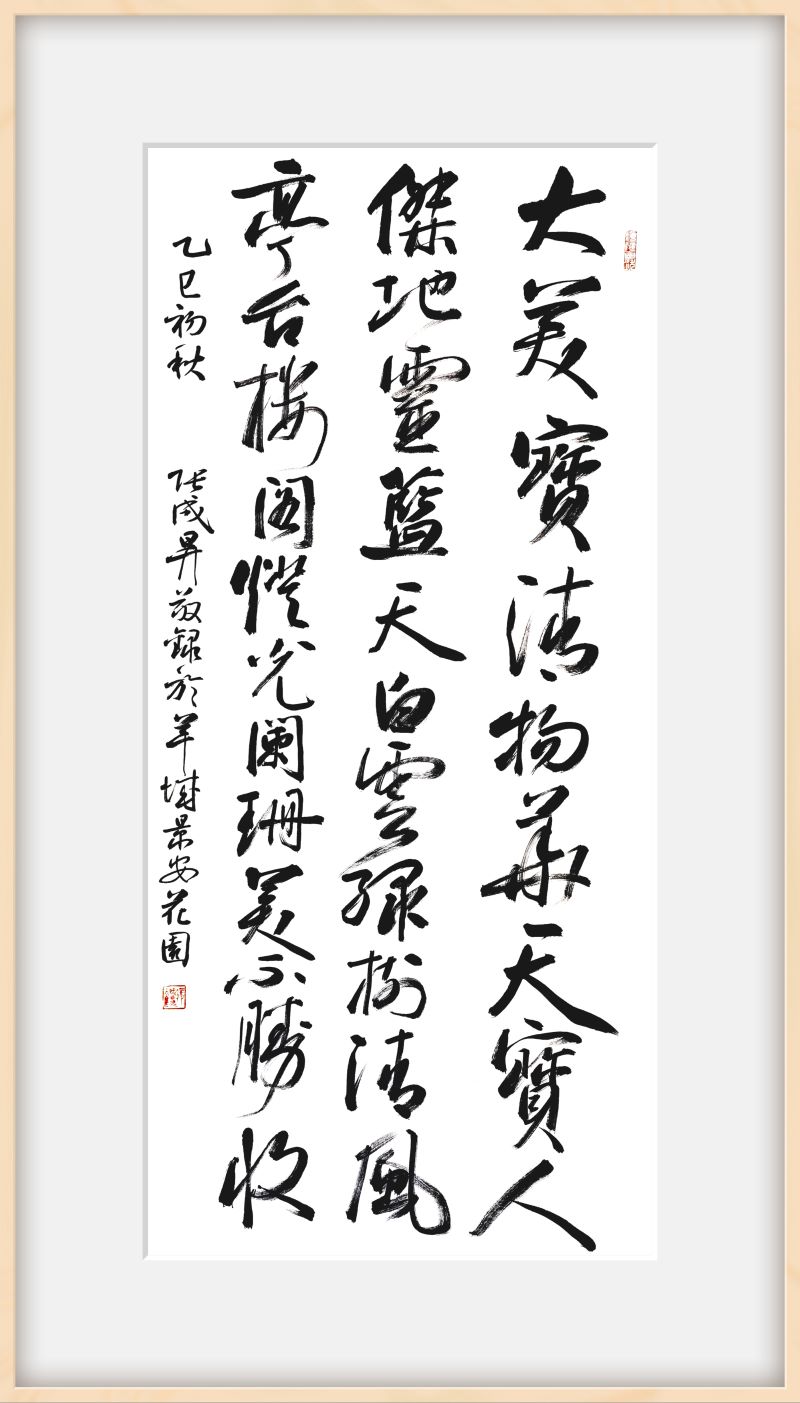 大美寶清物華天寶人
傑地靈藍天白雲緑樹清風
亭台楼阁燈光阑珊美不勝收
乙巳初秋 張成昇敬録於羊城景安花園